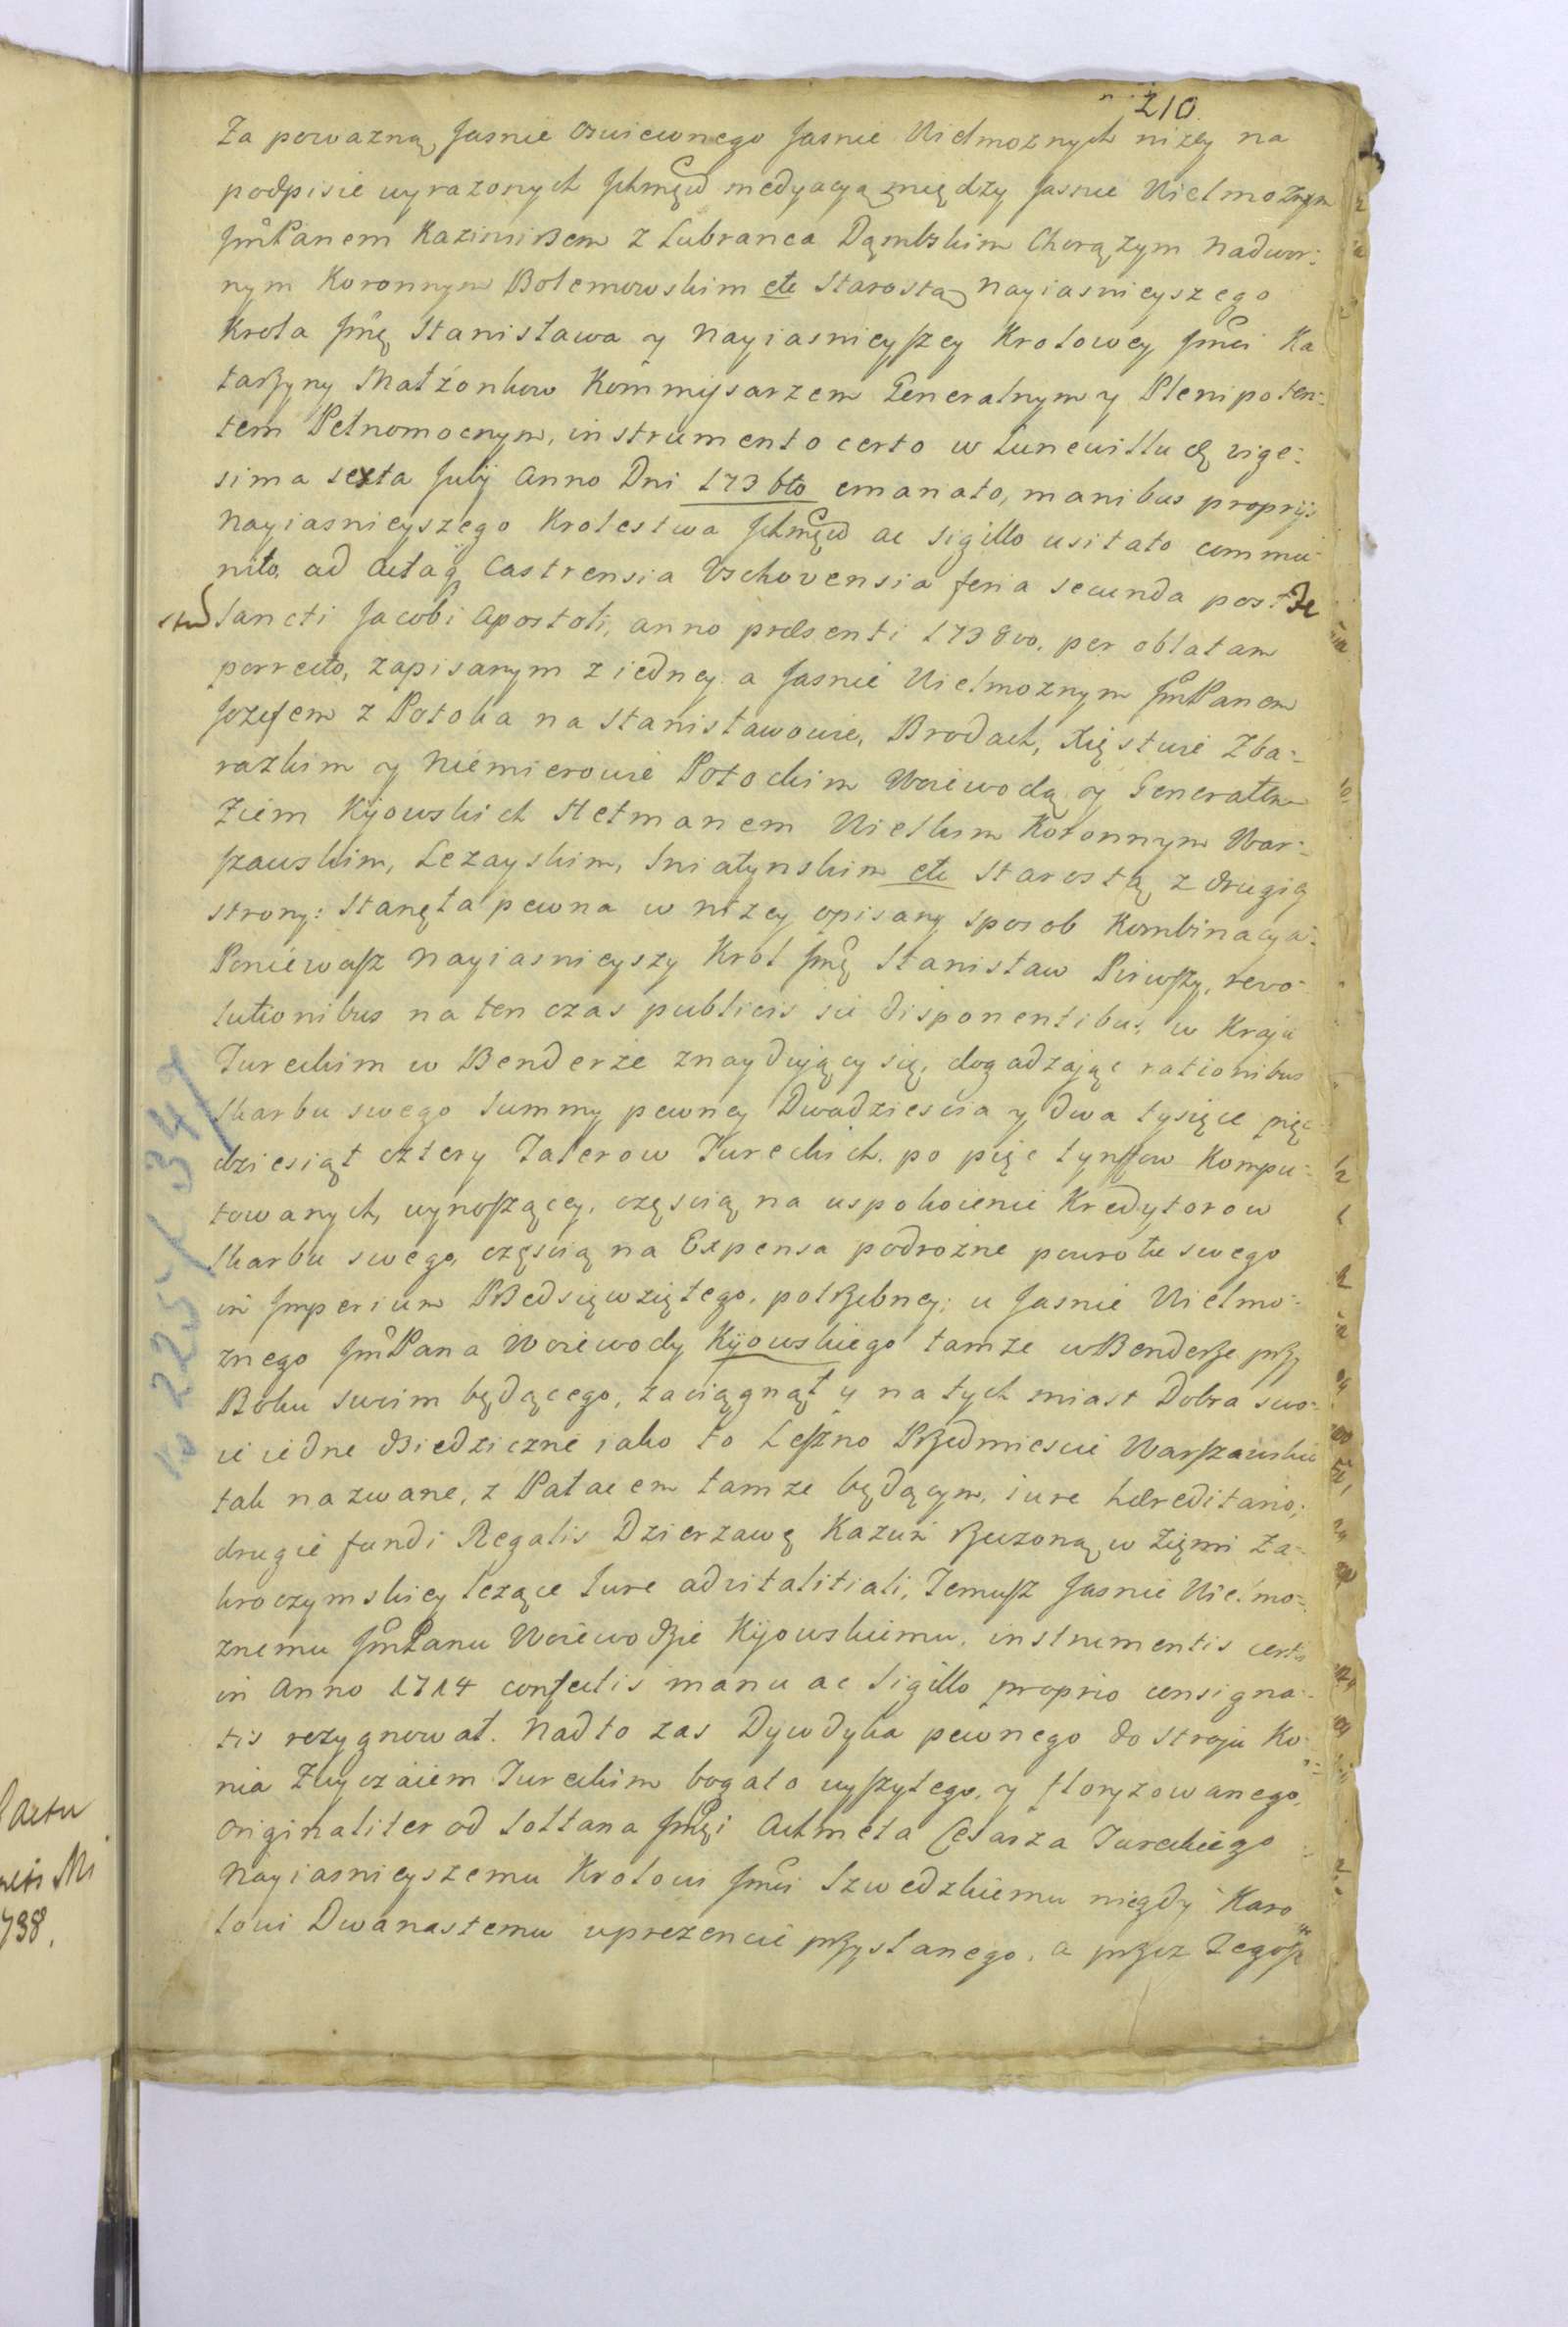 210
Za powazną Jasnie Oswieconego Jasnie Wielmoznych nizey na
podpisie wyrazonych Ichmęsciow medyacyą między Jasnie Wielmoznym
JmPanem Kazimirzem z Lubranca Dąmbskim Chorązym Nadwor:
nym Koronnym Bolemowskim etc Starostą Nayiasnieyszego
Krola Jmę Stanisława y Nayiasnieyszey Krolowey Jmci Ka
tarzyny Małżonkow Kommissarzem Generalnym y Plenipoten:
tem Pełnomocnym, instrumento certo w Lunewillu d vige:
sima sexta July Anno Dni 1736to emanato, manibus proprijs
Nayiasnieyszego Krolestwa Ichmęciow ac Sigillo usitato commu
nito, ad Acta Castrensia Vschovensia feria secunda post
Sancti Jacobi Apostoli, anno præsenti 1738vo. per oblatam
porrecto, zapisanym z iedney a Jasnie Wielmoznym JmPanem
Jozefem z Potoka na Stanisławowie, Brodach, Xięstwie Zba:
razkim y Niemierowie Potockim Woiewodą y Generałem
Ziem Kijowskich Hetmanem Wielkim Koronnym War:
szawskim, Lezayskim, Sniatynskim etc Starostą z drugiey
strony: Stanęła pewna w nizey opisany sposob Kombinacya:
Poniewasz Nayiasnieyszy Krol Jmę Stanisław Pierwszy, revo:
lutionibus na ten czas publicis sic disponentibus, w Kraju
Tureckim w Benderze znayduiący się, dogadzaiąc rationibus
Skarbu swego Summy pewney Dwadziescia y dwa tysięce pięc
dziesiąt cztery Talerow Tureckich po pięc tynfow Kompu:
towanych, wynoszącey, częscią na uspokoienie Kredytorow
Skarbu swego, częscią na Expensa podrozne powrotu swego
in Imperium Przedsięwziętego, potrzebney; u Jasnie Wielmo:
znego JmPana Woiewody Kijowskiego tamze w Benderze przy
Boku swoim będącego, zaciągnął y natychmiast Dobra swo:
ie iedne dziedziczne iako to Leszno Przedmiescie Warszawskie
tak nazwane, z Pałacem tamze będącym, iure hæreditario;
drugie fundi Regalis Dzierzawę Kazuń rzeczoną w Ziemi Za:
kroczymskiey lezące Iure advitalitiali, Temusz Jasnie Wielmo:
znemu JmPanu Woiewodzie Kijowskiemu, instrumentis certis
in Anno 1714 confectis manu ac Sigillo proprio consigna:
tis rezygnował. Nadto zas Dywdyka pewnego do Stroju Ko:
nia Zwyczaiem Tureckim bogato wyszytego, y floryzowanego,
originaliter od Sołtana Jmci Achmeta Cesarza Tureckiego
Nayiasnieyszemu Krolowi Jmci Szwedzkiemu niegdy Karo
lowi Dwanastemu w prezencie przysłanego, a przez Tegosz
738.